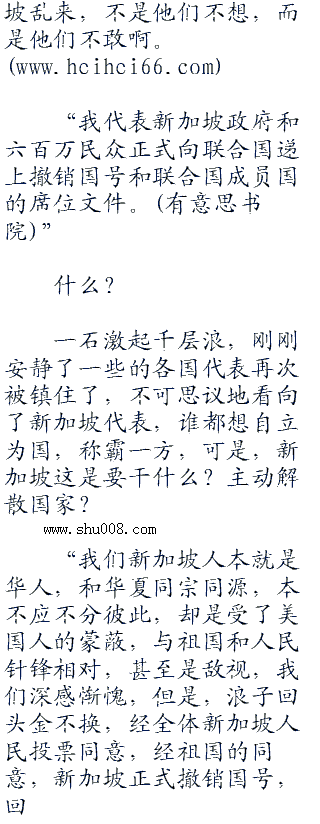 坡乱来，不是他们不想，而
是他们不敢啊。
(www.hcihci66.com)
“我代表新加坡政府和
六百万民众正式向联合国递
上撤销国号和联合国成员国
的席位文件。(有意思书
院)”
什么？
一石激起千层浪，刚刚
安静了一些的各国代表再次
被镇住了，不可思议地看向
了新加坡代表，谁都想自立
为国，称霸一方，可是，新
加坡这是要干什么？主动解
散国家？
www.shu008.com
“我们新加坡人本就是
华人，和华夏同宗同源，本
不应不分彼此，却是受了美
国人的蒙蔽，与祖国和人民
针锋相对，甚至是敌视，我
们深感惭愧，但是，浪子回
头金不换，经全体新加坡人
民投票同意，经祖国的同
意，新加坡正式撤销国号，
回